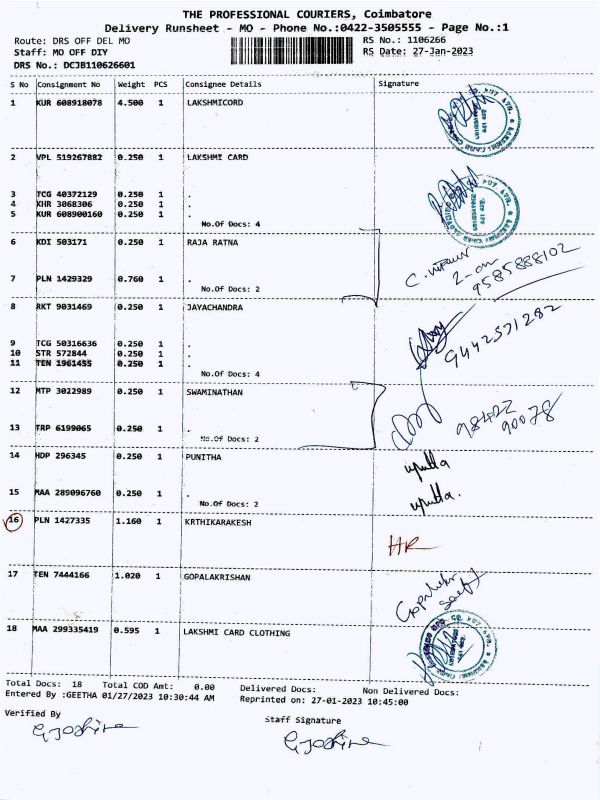 THE PROFESSIONAL COURIERS, Coimbatore
Delivery Runsheet - MO - Phone No.:0422-3505555 - Page No.:1
Route: DRS OFF DEL MO RS No.: 1106266
Staff: MO OFF DIY RS Date: 27-Jan-2023
DRS No.: DCJB110626601
S No Consignment No Weight PCS Consignee Details Signature
1 KUR 608918078 4.500 1 LAKSHMICORD
2 VPL 519267882 0.250 1 LAKSHMI CARD
3 TCG 40372129 0.250 1 .
4 KHR 3068306 0.250 1 .
5 KUR 608900160 0.250 1 .
No.Of Docs: 4
6 KDI 503171 0.250 1 RAJA RATNA
7 PLN 1429329 0.760 1 .
No.Of Docs: 2
9585888102
8 RKT 9031469 0.250 1 JAYACHANDRA
9442571282
9 TCG 50316636 0.250 1 .
10 STR 572844 0.250 1 .
11 TEN 1961455 0.250 1 .
No.Of Docs: 4
12 MTP 3022989 0.250 1 SWAMINATHAN
98422
90078
13 TRP 6199065 0.250 1 .
No.Of Docs: 2
14 HDP 296345 0.250 1 PUNITHA
15 MAA 289096760 0.250 1 .
No.Of Docs: 2
16 PLN 1427335 1.160 1 KRTHIKARAKESH
HR
17 TEN 7444166 1.020 1 GOPALAKRISHAN
18 MAA 299335419 0.595 1 LAKSHMI CARD CLOTHING
Total Docs: 18 Total COD Amt: 0.00 Delivered Docs: Non Delivered Docs:
Entered By :GEETHA 01/27/2023 10:30:44 AM Reprinted on: 27-01-2023 10:45:00
Verified By Staff Signature